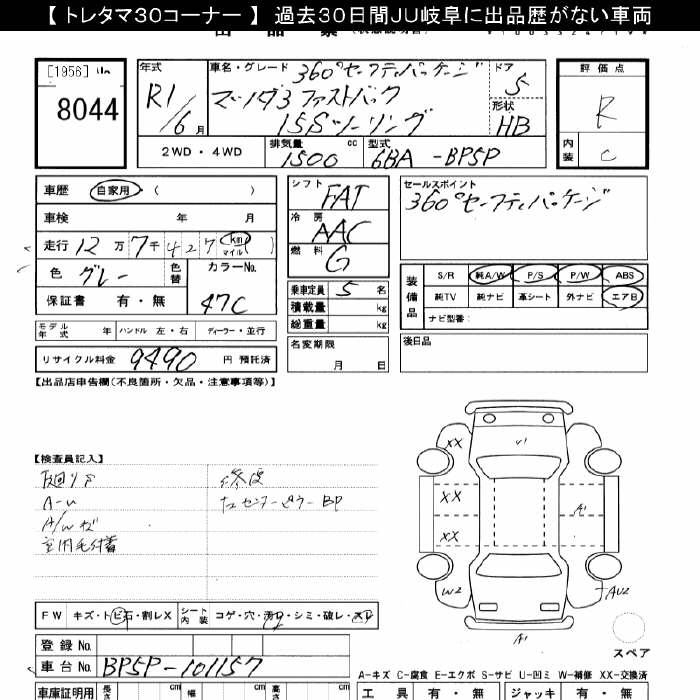 【 トレタマ30コーナー 】 過去30日間JU岐阜に出品歴がない車両
[1956]
8044
年式
R1/6月
車名・グレード
360°セーフティパッケージ
マツダ3 ファストバック
15Sツーリング
ドア
5
形状
HB
2WD・4WD
排気量
1500 cc
型式
6BA-BP5P
評価点
R
内装
C
車歴 自家用・( )
車検 年 月
走行 12万7千427 km マイル( )
色 グレー
色替
カラーNo.
47C
保証書 有・無
モデル年式 年
ハンドル 左・右
ディーラー・並行
リサイクル料金 9490 円 預託済
シフト
FAT
冷房
AAC
燃料
G
乗車定員 5 名
積載量 kg
総重量 kg
名変期限
月 日
セールスポイント
360°セーフティパッケージ
装備品
S/R 純A/W P/S P/W ABS
純TV 純ナビ 革シート 外ナビ エアB
ナビ型番:
後日品
【出品店申告欄(不良箇所・欠品・注意事項等)】
【検査員記入】
A-U
室内毛付着
修復
センターピラー BP
XX
XX
XX
W2
A1
A1
AU2
スペア
FW キズ・トビ石・割レX
シート内装 コゲ・穴・汚レ・シミ・破レ・スレ
登録No.
車台No. BP5P-101157
A-キズ C-腐食 E-エクボ S-サビ U-凹ミ W-補修 XX-交換済
車庫証明用 長さ cm 幅 cm 高さ cm
工具 有・無 ジャッキ 有・無